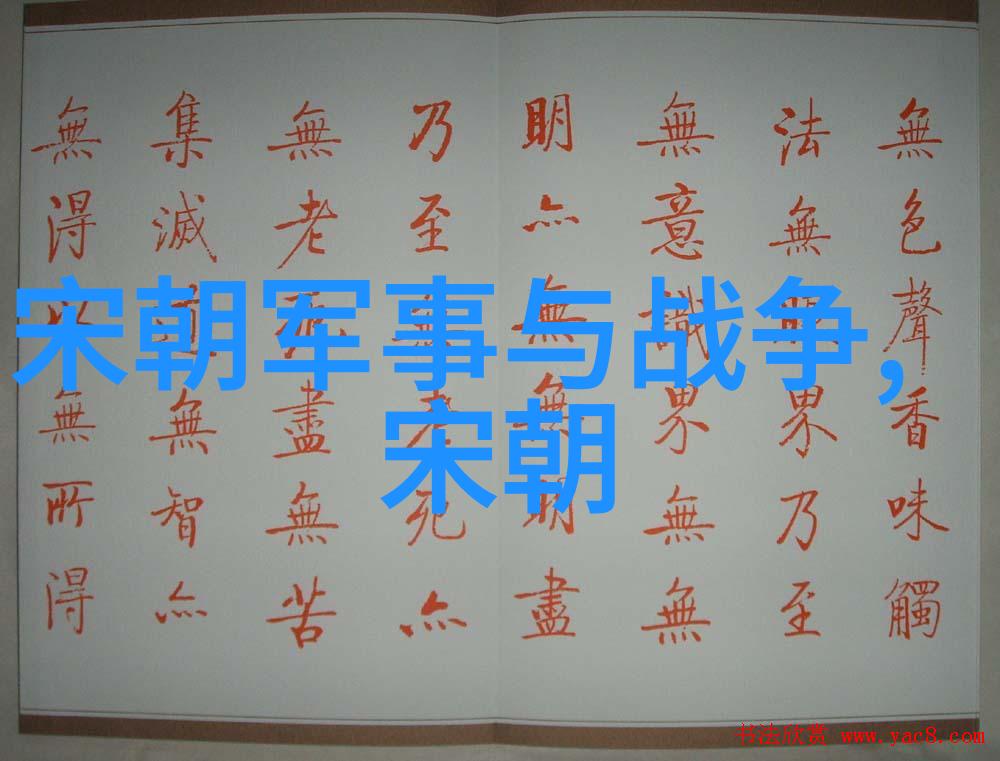 無色聲香味觸
法無眼界乃至
無意識界無無
明亦無無明盡
乃至無老死亦
無老死盡無苦
集滅道無智亦
無得以無所得
宋朝军事与战争，
宋朝
书法欣赏 www.yac8.com